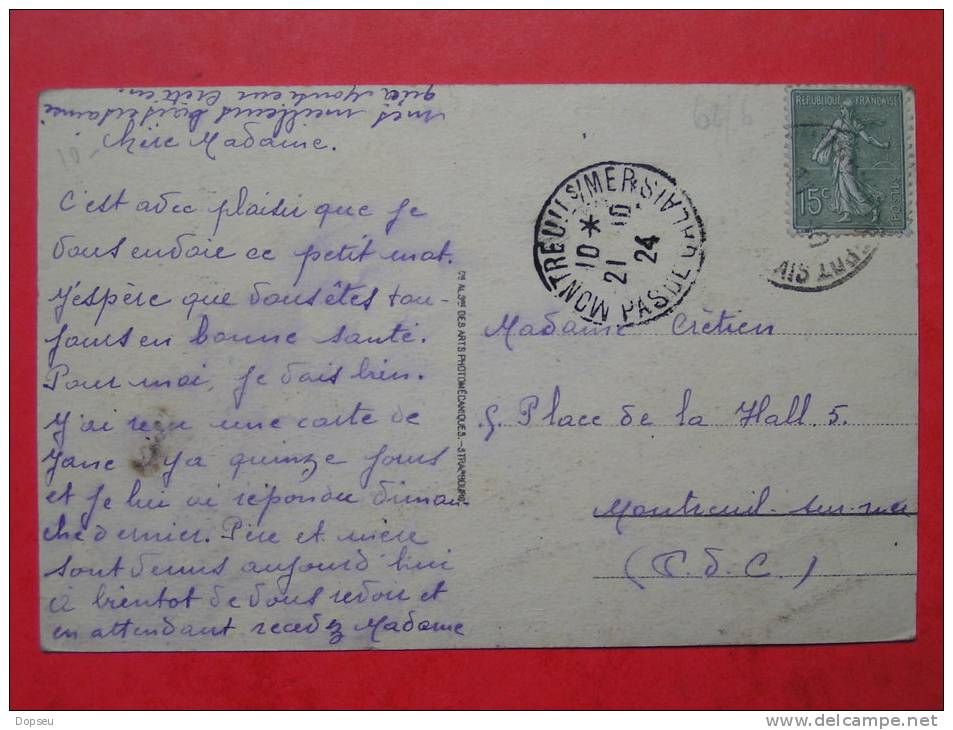 Chère Madame.
C'est avec plaisir que je
vous envoie ce petit mot.
J'espère que vous êtes tou-
jours en bonne santé.
Pour moi, je vais bien.
J'ai reçu une carte de
Jane il y a quinze jours
et je lui ai répondu diman-
che dernier. Père et mère
sont venus aujourd'hui
à bientot de vous revoir et
en attendant recevez Madame
mes meilleurs
Monsieur Crétien.
Cie ALSnne DES ARTS PHOTOMÉCANIQUES.-STRASBOURG
REPUBLIQUE FRANÇAISE
15c
POSTES
MONTREUIL S/MER PAS DE CALAIS
10 * 10
21
24
Madame Crétien
5. Place de la Hall 5.
Montreuil-sur-mer
(P. d. C.)
Dopseu
www.delcampe.net